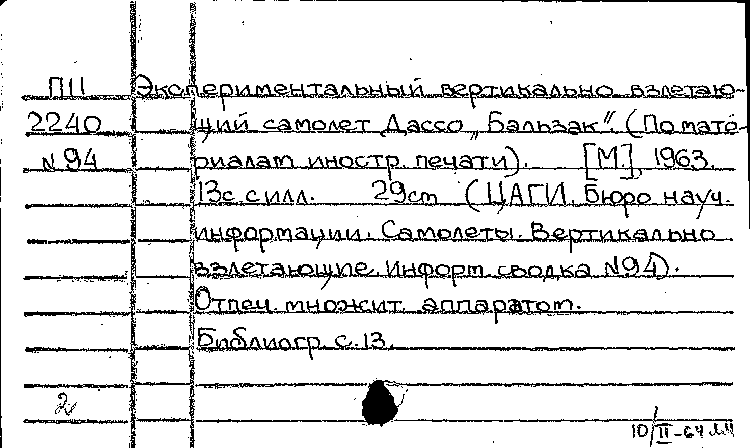 П11 Экспериментальный вертикально взлетаю-
2240 щий самолет Дассо „Бальзак“. (По мате-
N 94 риалам иностр. печати). [М.], 1963.
13с. с илл. 29cm (ЦАГИ. Бюро науч.
информации. Самолеты. Вертикально
взлетающие. Информ. сводка N94).
Отпеч. множит. аппаратом.
Библиогр. с. 13.
2
10/II-64